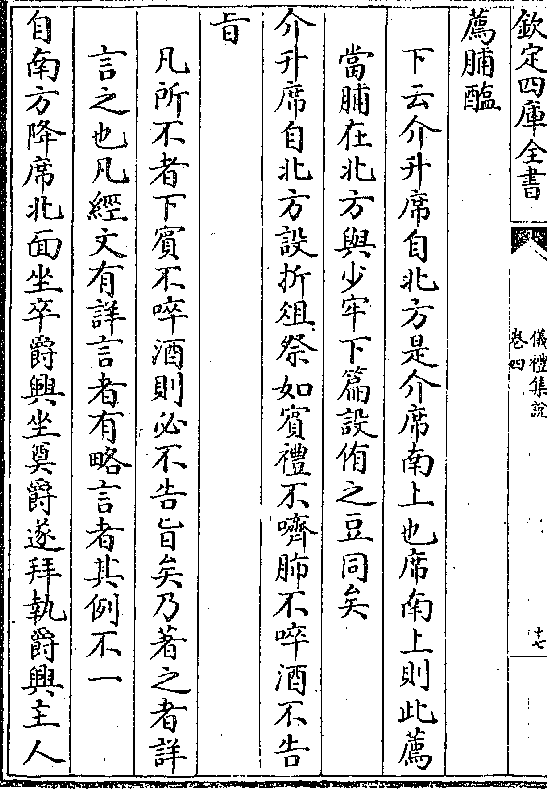 欽定四庫全書
儀禮集說
卷四
十七
薦脯醢
下云介升席自北方是介席南上也席南上則此薦
當脯在北方與少牢下篇設侑之豆同矣
介升席自北方設折俎祭如賓禮不嚌肺不啐酒不告
旨
凡所不者下賓不啐酒則必不告旨矣乃著之者詳
言之也凡經文有詳言者有略言者其例不一
自南方降席北面坐卒爵興坐奠爵遂拜執爵興主人